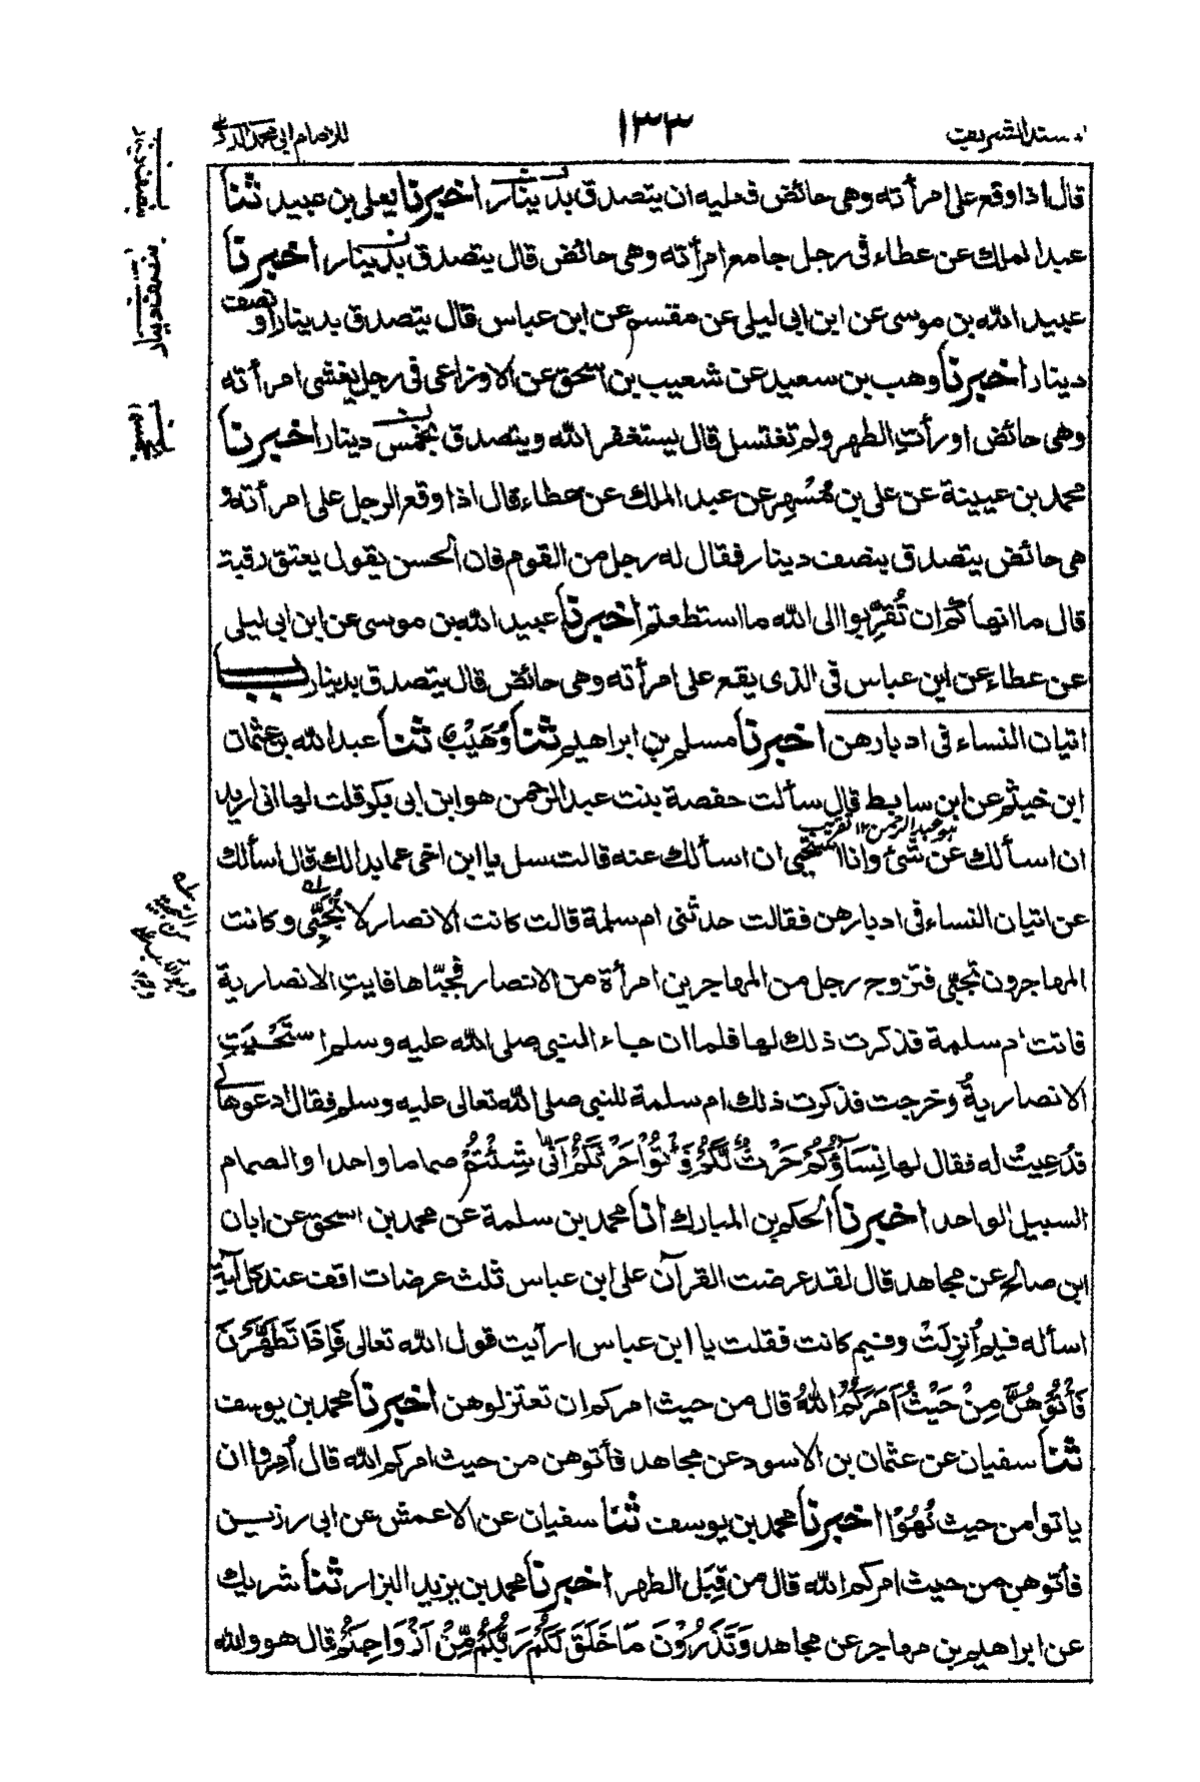 مسند الشريف
١٣٣
للامام ابى محمد الدارمى
قال اذا وقع على امرأته وهى حائض فعليه ان يتصدق بدينار اخبرنا يعلى بن عبيد ثنا
عبد الملك عن عطاء فى رجل جامع امرأته وهى حائض قال يتصدق بدينار اخبرنا
عبيد الله بن موسى عن ابن ابى ليلى عن مقسم عن ابن عباس قال يتصدق بدينار او نصف
دينار اخبرنا وهب بن سعيد عن شعيب بن اسحق عن الاوزاعى فى رجل يغشى امرأته
وهى حائض او رأت الطهر ولم تغتسل قال يستغفر الله ويتصدق بخمس دينار اخبرنا
محمد بن عيينة عن على بن مُسْهِر عن عبد الملك عن عطاء قال اذا وقع الرجل على امرأته و
هى حائض يتصدق بنصف دينار فقال له رجل من القوم فان الحسن يقول يعتق رقبة
قال ما انهاكم ان تُقَرِّبوا الى الله ما استطعتم اخبرنا عبيد الله بن موسى عن ابن ابى ليلى
عن عطاء عن ابن عباس فى الذى يقع على امرأته وهى حائض قال يتصدق بدينار باب
اتيان النساء فى ادبارهن اخبرنا مسلم بن ابراهيم ثنا وُهَيْبٌ ثنا عبد الله بن عثمان
ابن خيثم عن ابن سابط قال سألت حفصة بنت عبد الرحمن هو ابن ابى بكر قلت لها انى اريد
هو عبد الرحمن ١٢ تقريب
ان اسألك عن شئ وانا استحيى ان اسألك عنه قالت سل يا ابن اخى عما بدا لك قال اسألك
عن اتيان النساء فى ادبارهن فقالت حدثنى ام سلمة قالت كانت الانصار لا تُجَبِّى وكانت
المهاجرون تجبى فتزوج رجل من المهاجرين امرأة من الانصار فجبّاها فابيت الانصارية
فاتت ام سلمة فذكرت ذلك لها فلما ان جاء النبى صلى الله عليه وسلم استَحْيَتِ
الانصاريةُ وخرجت فذكرت ذلك ام سلمة للنبى صلى الله تعالى عليه وسلم فقال ادعوها لى
فدُعِيتْ له فقال لها نِسَاؤُكُمْ حَرْثٌ لَّكُمْ فَأْتُوْا حَرْثَكُمْ اَنّٰى شِئْتُمْ صماما واحدا والصمام
السبيل الواحد اخبرنا الحكم بن المبارك انا محمد بن سلمة عن محمد بن اسحق عن ابان
ابن صالح عن مجاهد قال لقد عرضت القرآن على ابن عباس ثلث عرضات اقف عند كل آية
اسأله فيم اُنزِلَتْ وفيم كانت فقلت يا ابن عباس ارأيت قول الله تعالى فَاِذَا تَطَهَّرْنَ
فَأْتُوْهُنَّ مِنْ حَيْثُ اَمَرَكُمُ اللّٰهُ قال من حيث امركم ان تعتزلوهن اخبرنا محمد بن يوسف
ثنا سفيان عن عثمان بن الاسود عن مجاهد فأتوهن من حيث امركم الله قال اُمِروا ان
ياتوا من حيث نُهُوْا اخبرنا محمد بن يوسف ثنا سفيان عن الاعمش عن ابى رزين
فأتوهن من حيث امركم الله قال من قِبَل الطهر اخبرنا محمد بن يزيد البزار ثنا شريك
عن ابراهيم بن مهاجر عن مجاهد وَتَذَرُوْنَ مَا خَلَقَ لَكُمْ رَبُّكُمْ مِّنْ اَزْوَاجِكُمْ قال هو والله